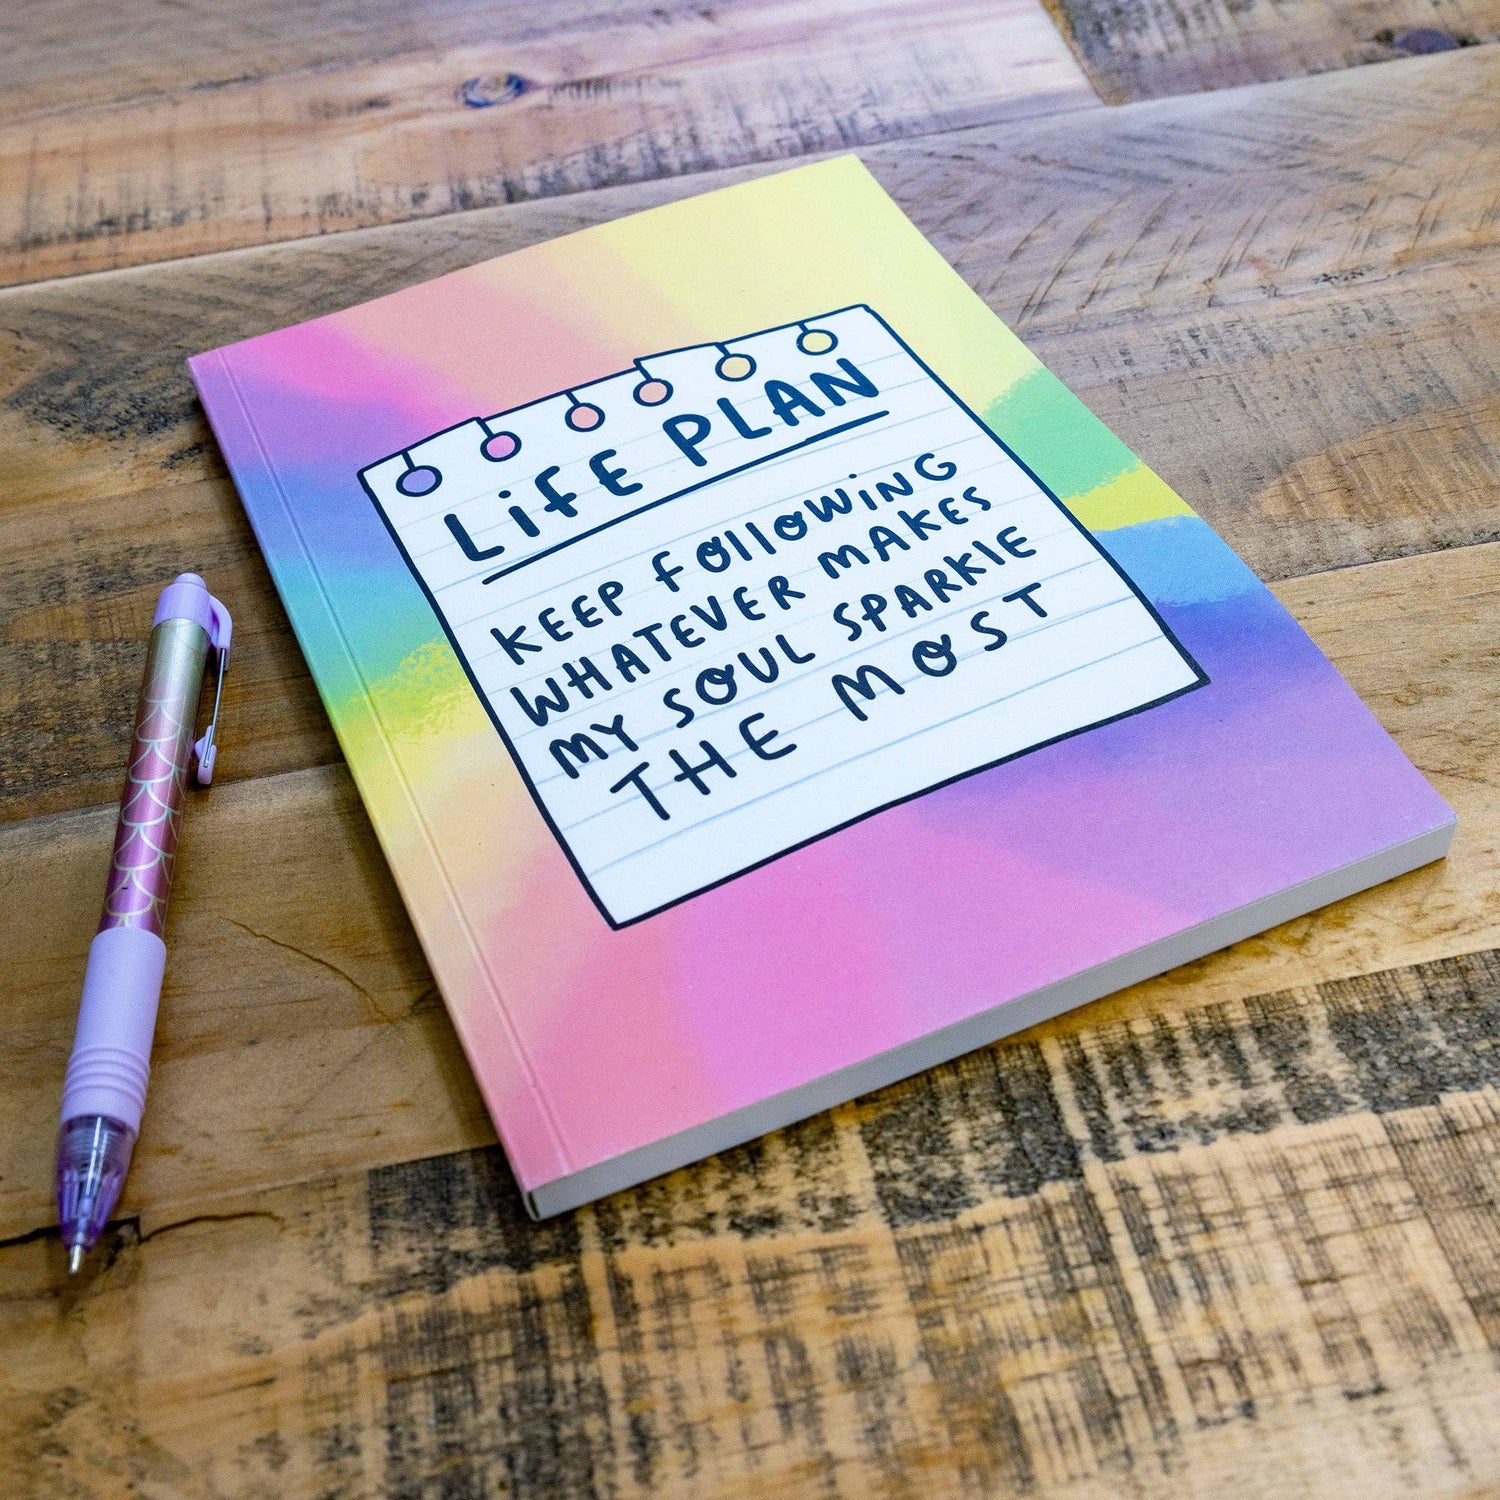 LiFE PLAN
KEEP FOllOWiNG
WHATEVER MAKES
MY SOUL SPARKlE
THE MOST